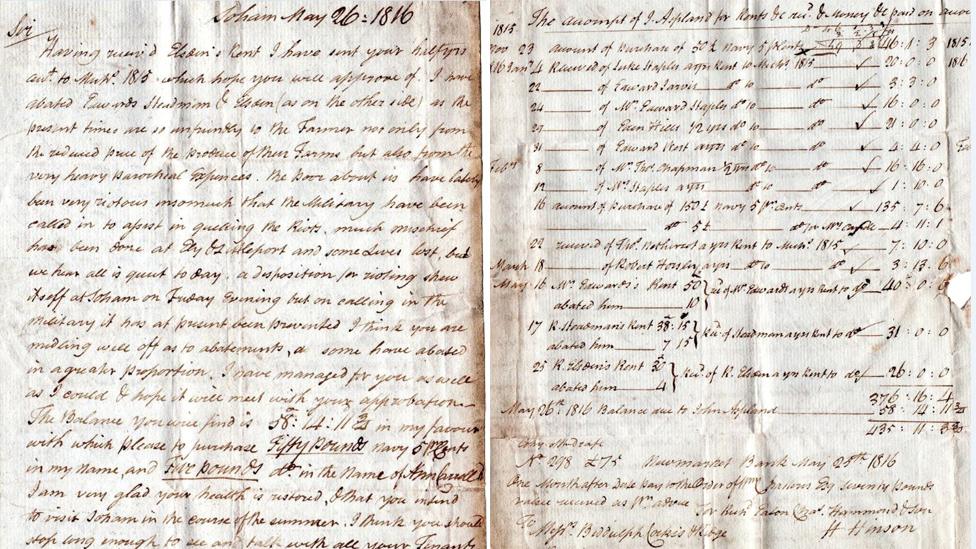 Soham May 26: 1816
Sir
Having receiv'd Elsden's Rent I have sent your half yrs
acct. to Michs. 1815 which hope you will approve of. I have
abated Edwards Steadman & Elsden (as on the other side) as the
present times are so unfriendly to the Farmer not only from
the reduced price of the produce of their Farms, but also from the
very heavy Parochial Expences. the Poor about us have lately
been very riotous insomuch that the Military have been
called in to assist in quelling the Riots, much mischief
has been done at Ely & Littleport and some Lives lost, but
we hear all is quiet to day. a disposition for rioting shew
itself at Soham on Friday Evening but on calling in the
Military it has at present been prevented I think you are
midling well off as to abatements, as some have abated
in a greater proportion, I have managed for you as well
as I could & hope it will meet with your approbation
The Balance you will find is 58:14:11 3/4 in my favour
with which please to purchase Fifty Pounds navy 5 pr Cents
in my name, and Five Pounds do. in the name of Ann
I am very glad your health is restored, & that you intend
to visit Soham in the course of the summer. I think you should
stop long enough to see and talk with all your Tenants
The account of J. Aspland for Rents &c recd. & Money &c paid on
1815
Nov 23 amount of Purchase of 50£ navy 5 pr Cents 46:1:3 1815
1816 Jany 4 Received of Luke Staples a yrs Rent to Michs 1815 20:0:0 1816
22 of Edward Jarvis do to do 3:3:0
24 of Mr. Edward Staples do to do 16:0:0
29 of Hills 1/2 yrs do to do 21:0:0
31 of Edward West a yrs do to do 4:4:0
Feby 8 of Mr. Thos. Chapman 1/2 yrs do to do 16:16:0
12 of Mr. Staples a yrs do to do 1:10:0
16 amount of Purchase of 150£ navy 5 pr Cents 135:7:6
do 5£ do for Mrs 4:11:1
22 received of Thos. Nothcrost a yrs Rent to Michs. 1815 7:10:0
March 18 of Robert Horsley a yrs do to do 3:13:6
May 16 Mr. Edwards's Rent 50 } recd of Mr Edwards a yrs Rent to do 40:0:6
abated him 10
17 R. Steadman's Rent 38:15 } Recd. of Steadman a yrs Rent to do 31:0:0
abated him 7 15
25 R. Elsden's Rent 30 } Recd. of R. Elsden a yrs Rent to do 26:0:0
abated him 4
376:16:4
May 26th. 1816 Balance due to John Aspland 58:14:11 3/4
435:11:3 3/4
Copy of Draft
No 298 £75 Newmarket Bank May 25th 1816
One Month after Date Pay to the Order of Wm Esq Seventy Pounds
value received as pr above
For Rich Eaton Chas. Hammond & Son
To Messrs. Biddulph Cocks & Ridge H Hinson